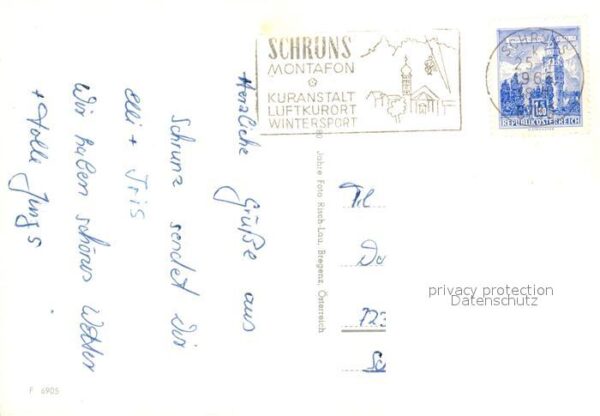 SCHRUNS
MONTAFON
KURANSTALT
LUFTKURORT
WINTERSPORT
SCHRUNS
25
196
1.50
REPUBLIK ÖSTERREICH
Herzliche Grüße aus
Schruns sendet Dir
Elli + Iris
Wir haben schönes Wetter
+ tolle Jungs
Jahre Foto Risch-Lau, Bregenz, Österreich
Til
Do
723
Sc
privacy protection
Datenschutz
F 6905